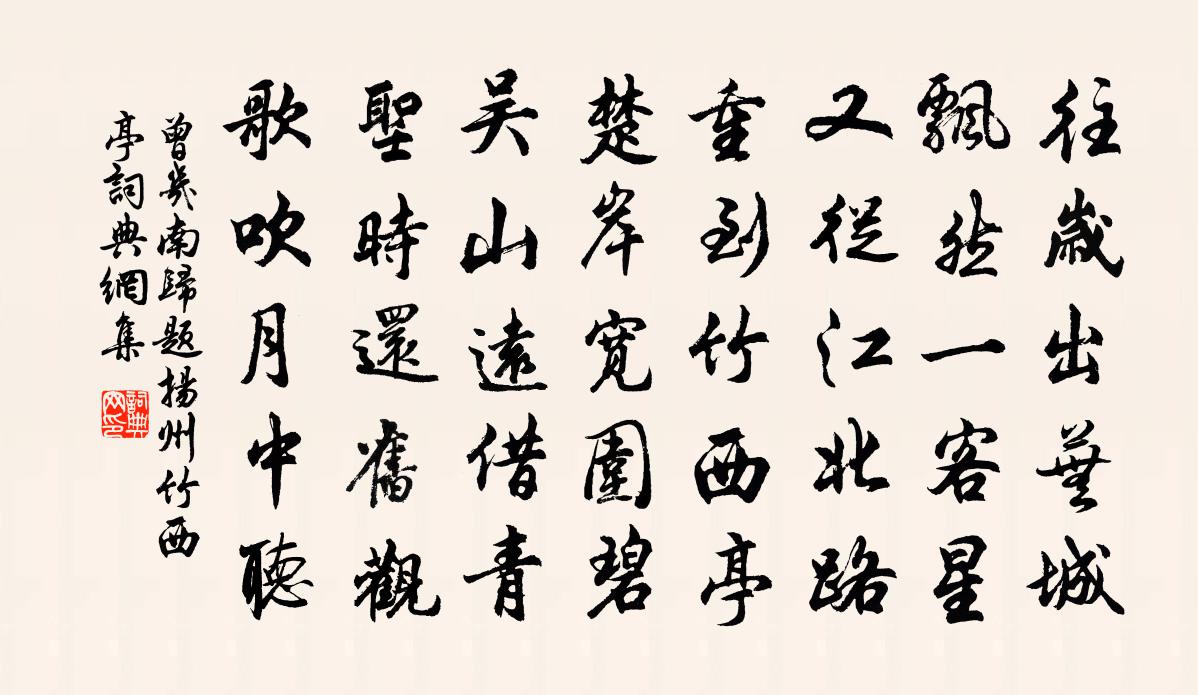 往歲出蕪城
飄然一客星
又從江北路
重到竹西亭
楚岸寬圍碧
吴山遠借青
聖時還舊觀
歌吹月中聽
曾幾南歸題揚州竹西
亭詞典網集
詞典
网印